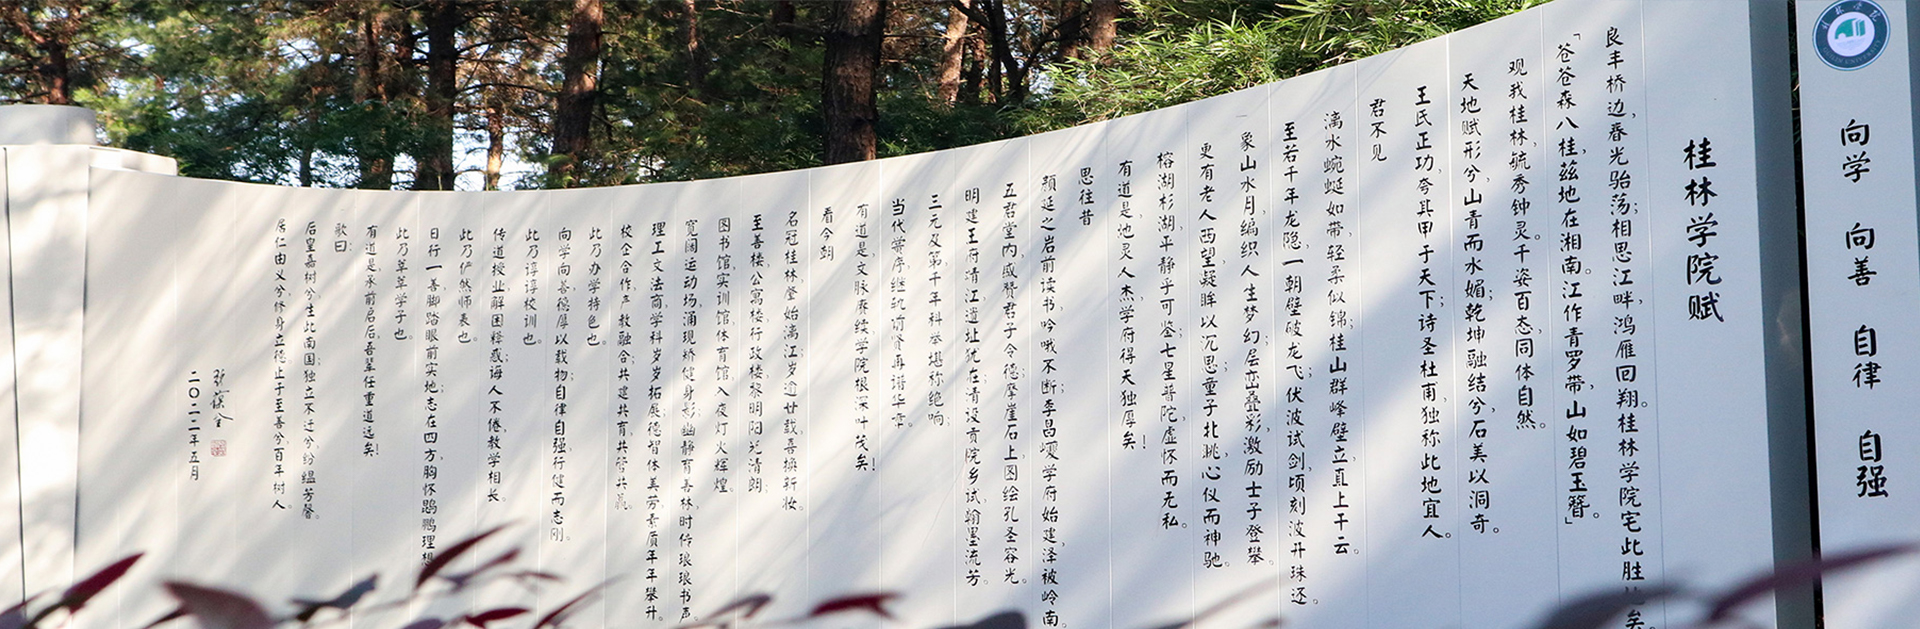 向学 向善 自律 自强
桂林学院赋
良丰桥边,春光骀荡;相思江畔,鸿雁回翔。桂林学院宅此胜地矣。
「苍苍森八桂,兹地在湘南。江作青罗带,山如碧玉簪。」
观我桂林,毓秀钟灵。千姿百态,同体自然。
天地赋形兮,山青而水媚;乾坤融结兮,石美以洞奇。
王氏正功,夸其甲于天下;诗圣杜甫,独称此地宜人。
君不见
漓水蜿蜒如带,轻柔似锦;桂山群峰壁立,直上干云。
至若千年龙隐,一朝壁破龙飞;伏波试剑,顷刻波开珠还。
象山水月,编织人生梦幻;层峦叠彩,激励士子登攀。
更有老人西望,凝眸以沉思;童子北眺,心仪而神驰。
榕湖杉湖,平静乎可鉴;七星普陀,虚怀而无私。
有道是,地灵人杰,学府得天独厚矣!
思往昔
颜延之岩前读书,吟哦不断;李昌巙学府始建,泽被岭南。
五君堂内,咸赞君子令德;摩崖石上,图绘孔圣容光。
明建王府,靖江遗址犹在;清设贡院,乡试翰墨流芳。
三元及第,千年科举堪称绝响;
当代黉序,继轨前贤再谱华章。
有道是,文脉赓续,学院根深叶茂矣!
看今朝
名冠桂林,肇始漓江,岁逾廿载,喜换新妆。
至善楼公寓楼行政楼,黎明阳光清朗;
图书馆实训馆体育馆,入夜灯火辉煌。
宽阔运动场,涌现矫健身影;幽静育善林,时传琅琅书声。
理工文法商,学科岁岁拓展;德智体美劳,素质年年攀升。
校企合作,产教融合;共建共育,共管共赢。
此乃办学特色也。
向学向善,德厚以载物;自律自强,行健而志刚。
此乃谆谆校训也。
传道授业解困释惑,诲人不倦,教学相长。
此乃俨然师表也。
日行一善,脚踏眼前实地;志在四方,胸怀鹍鹏理想
此乃莘莘学子也。
有道是,承前启后,吾辈任重道远矣!
歌曰:
后皇嘉树兮生此南国,独立不迁兮纷缊芳馨。
居仁由义兮修身立德,止于至善兮百年树人。
二〇二二年五月